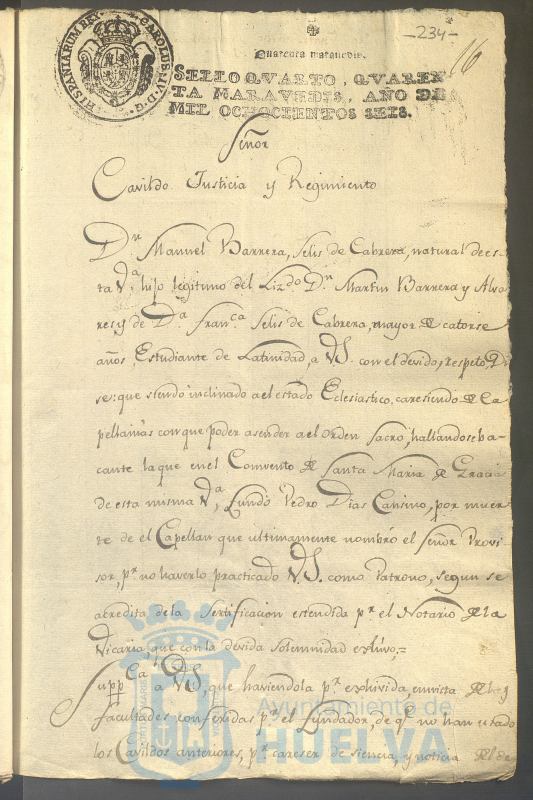 -234-
16
HISPANIARUM REX CAROLUS IV D G
Quarenta maravedis.
SELLO QVARTO, QVAREN
TA MARAVEDIS, AÑO DE
MIL OCHOCIENTOS SEIS.
Señor
Cavildo Justicia y Regimiento
Dn Manuel Barrera, Selis de Cabrera, natural de es-
ta Va, hijo legitimo del Lizdo Dn Martin Barrera y Alva
res, y de Da Franca Selis de Cabrera, mayor de catorse
años, Estudiante de Latinidad, a VS. con el devido, respeto, Di
se: que siendo inclinado a el estado Eclesiastico, caresiendo de Ca
pellanias con que poder asender a el orden Sacro, hallandose ba-
cante la que en el Convento de Santa Maria de Gracia
de esta misma Va, fundó Pedro Dias Cansino, por muer
te de el Capellan que ultimamente nombró el Señor Provi
sor, pr no haverlo practicado VS. como Patrono, segun se
acredita de la Sertificacion estendida pr el Notario de la
Vicaria, que con la devida solemnidad exhivo,=
Suppca a VS, que haviendola pr exhivida, en vista de las
facultades conferidas pr el Fundador, de qe no han usado
los Cavildos anteriores, pr careser de siencia, y noticia de el de
Ayuntamiento de
HUELVA